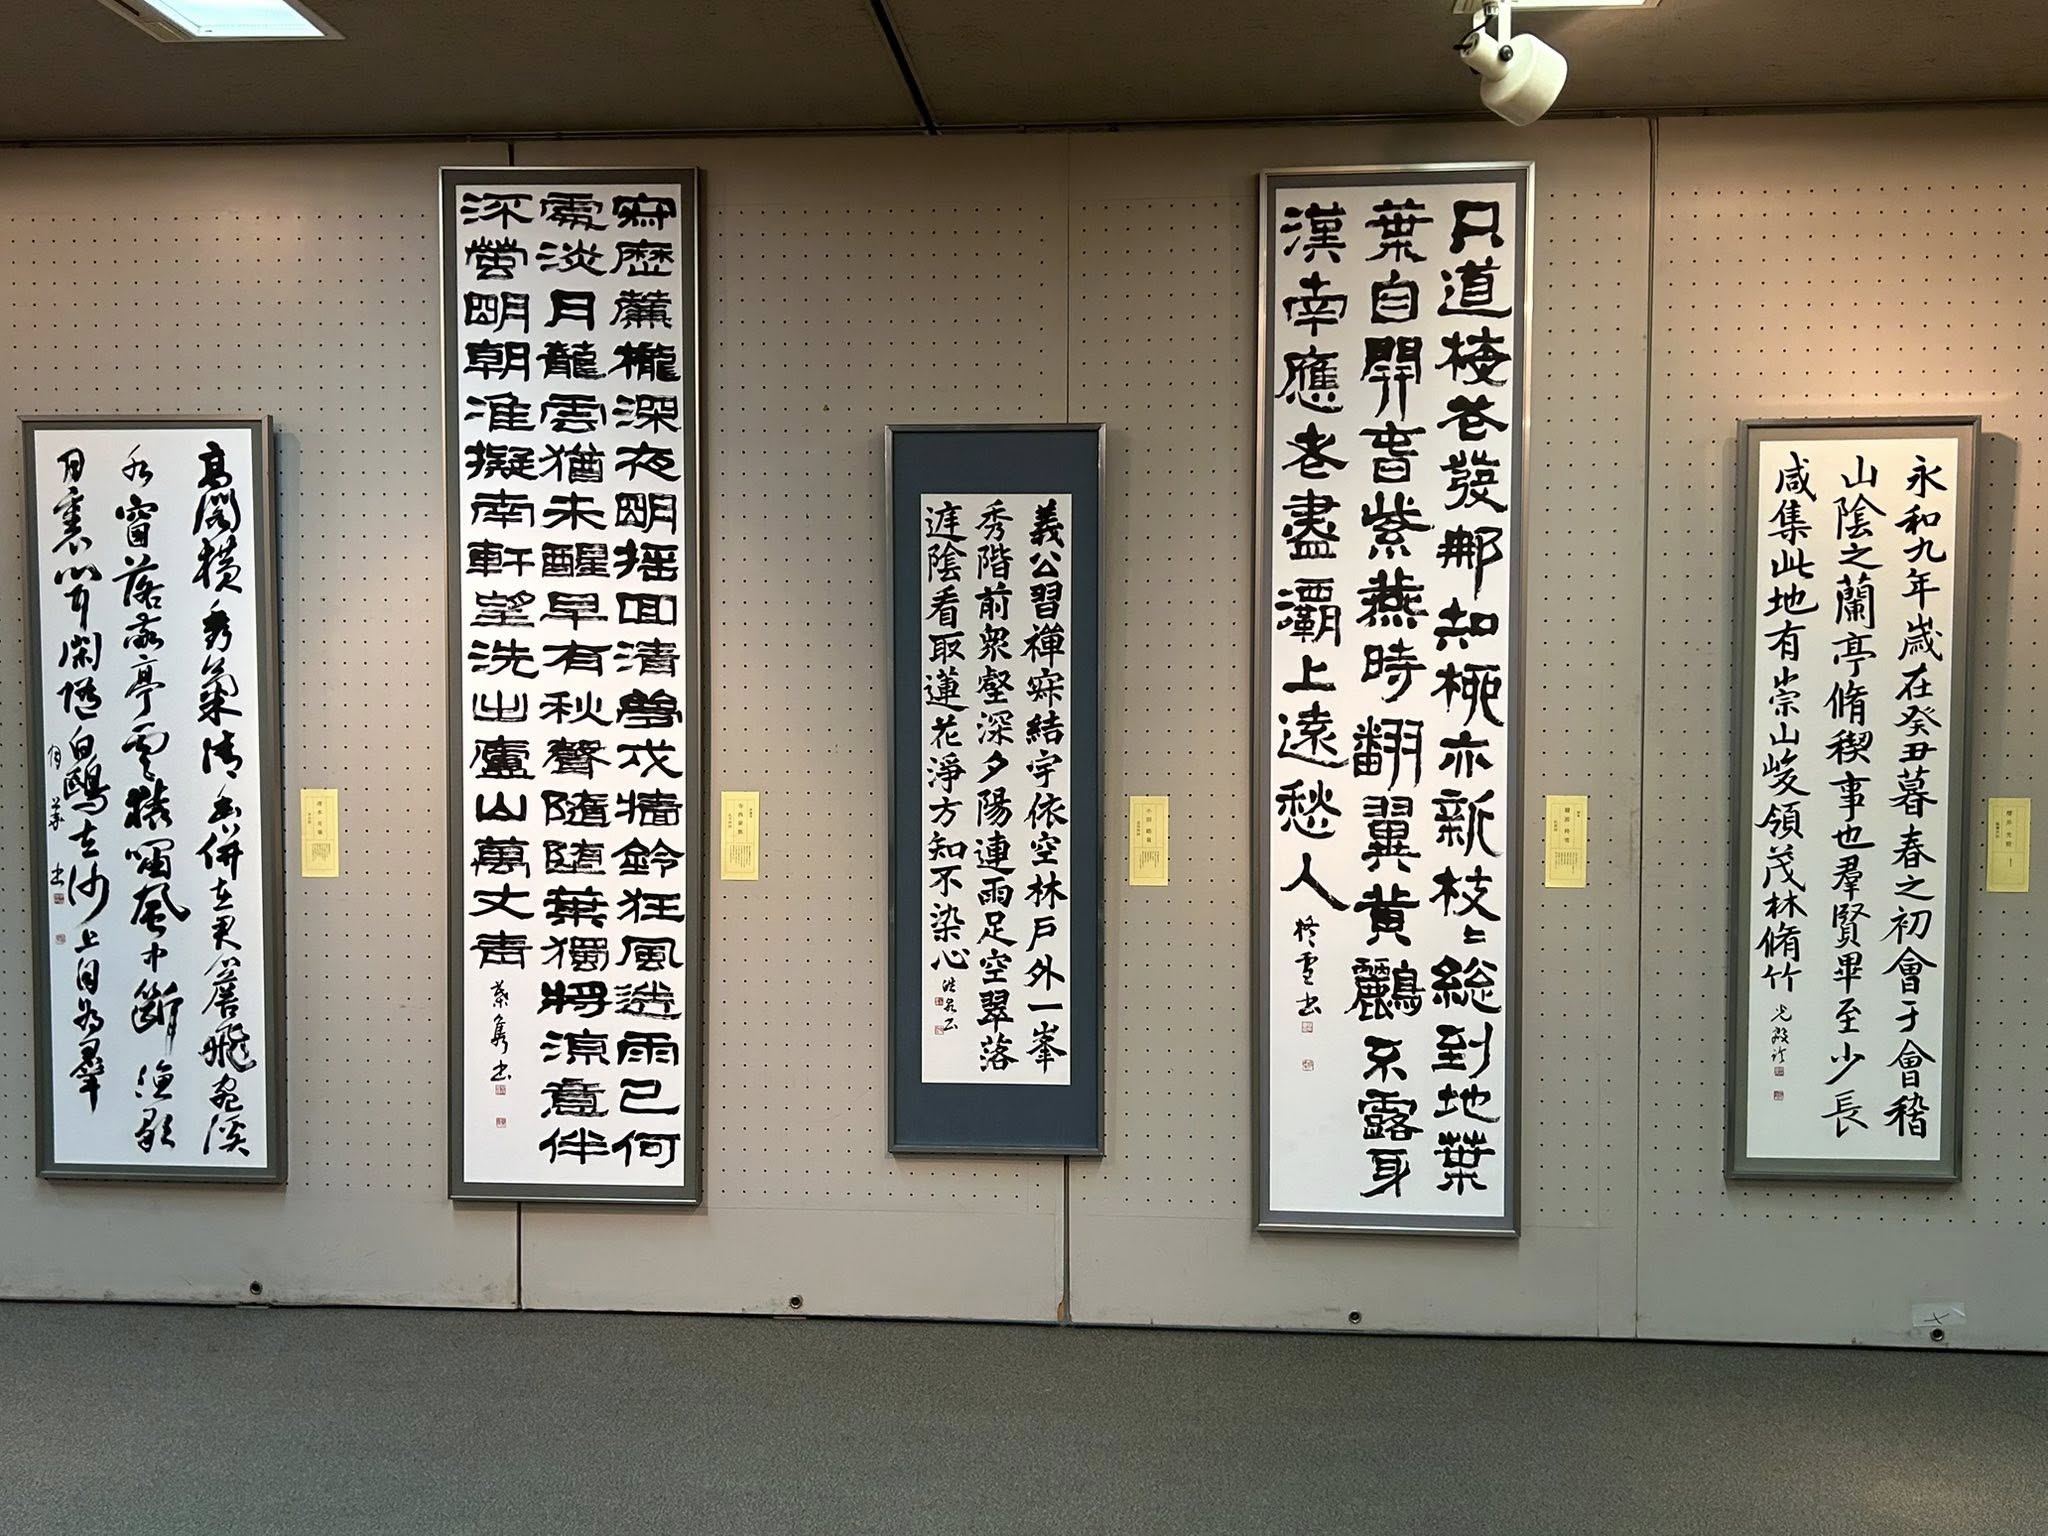 永和九年歳在癸丑暮春之初會于會稽
山陰之蘭亭脩稧事也羣賢畢至少長
咸集此地有崇山峻領茂林脩竹
只道梅花發那知柳亦新枝〻総到地葉
葉自開春紫燕時翻翼黄鸝不露身
漢南應老盡灞上遠愁人
義公習禅寂結宇依空林戸外一峯
秀階前衆壑深夕陽連雨足空翠落
庭陰看取蓮花淨方知不染心
寂歴簾櫳深夜明揺回清夢戍牆鈴狂風送雨已何
處淡月籠雲猶未醒早有秋聲隨墮葉獨將涼意伴
深螢明朝準擬南軒望洗出廬山萬丈青
高閣横秀氣清幽併在君簷飛宛溪
水窗落敬亭雲猿嘯風中斷漁歌
月裏聞閑隨白鷗去沙上自為羣